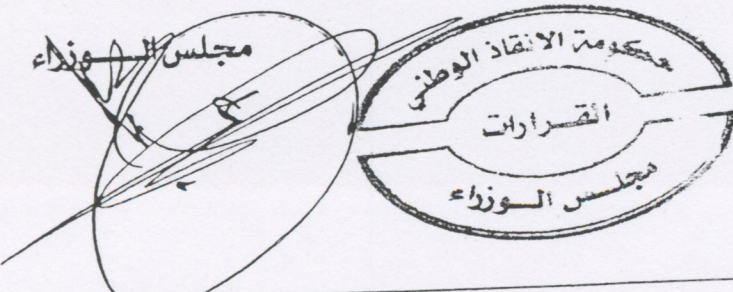 مجلس الـــوزراء
حكومة الانقاذ الوطني
القـــرارات
مجلـــس الـــوزراء